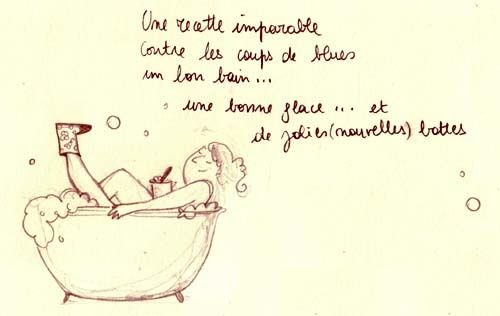 Une recette imparable
contre les coups de blues
un bon bain...
une bonne glace... et
de jolies (nouvelles) bottes